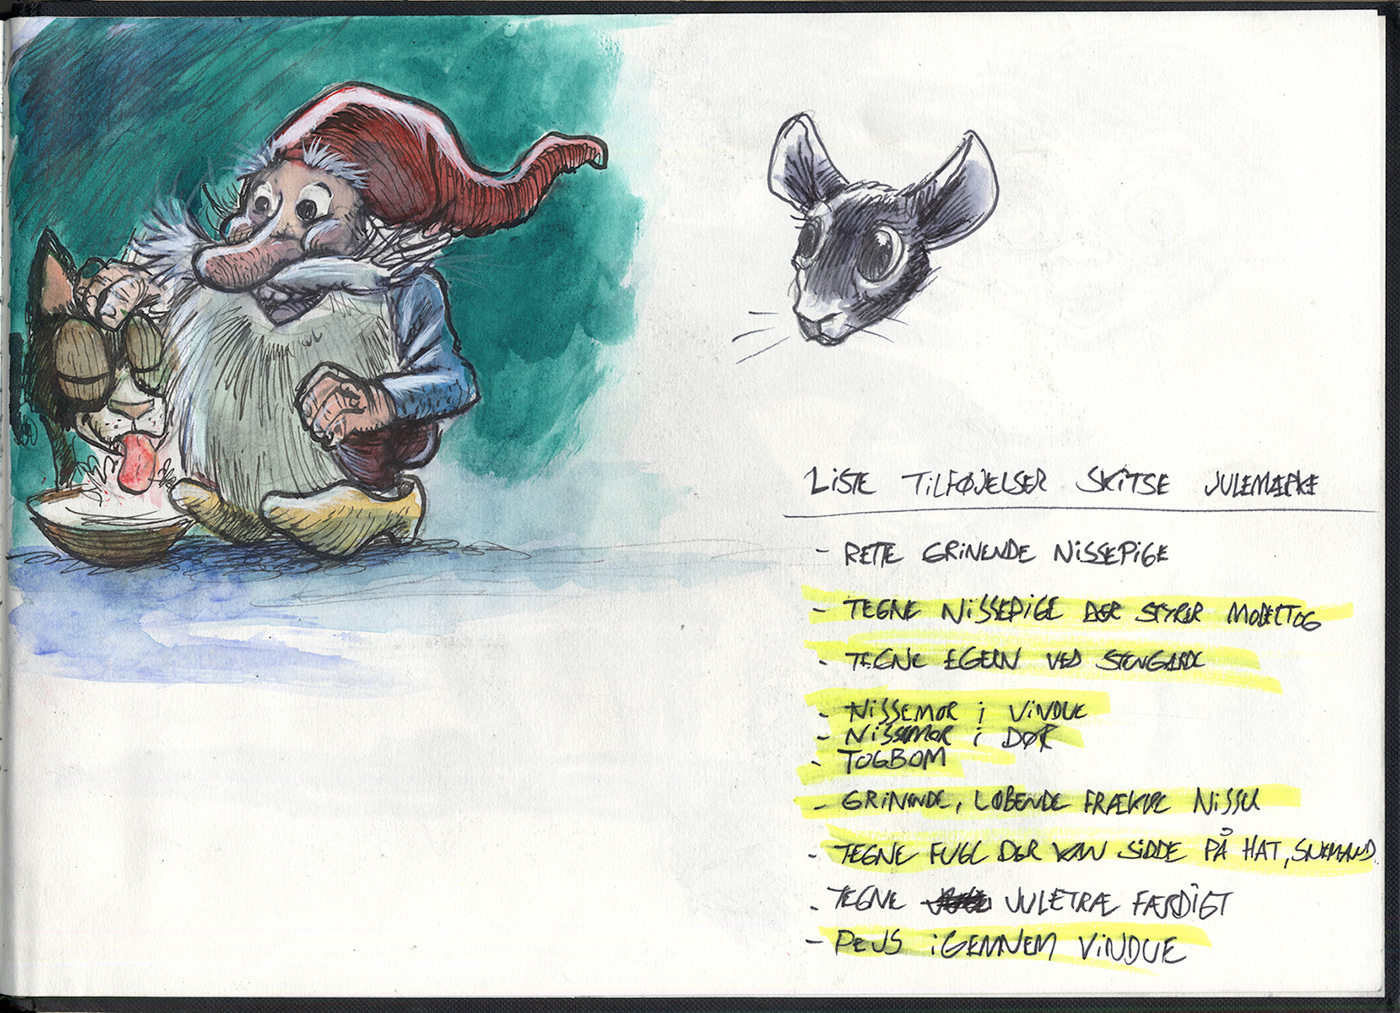 LISTE TILFØJELSER SKITSE JULEMÆRKE
- RETTE GRINENDE NISSEPIGE
- TEGNE NISSEPIGE DER STYRER MODELTOG
- TEGNE EGERN VED STENGÆRDE
- NISSEMOR i VINDUE
- NISSEMOR i DØR
- TOGBOM
- GRINENDE, LØBENDE FRÆKKE NISSER
- TEGNE FUGL DER KAN SIDDE PÅ HAT, SNEMAND
- TEGNE JULETRÆ FÆRDIGT
- PEJS iGENNEM VINDUE